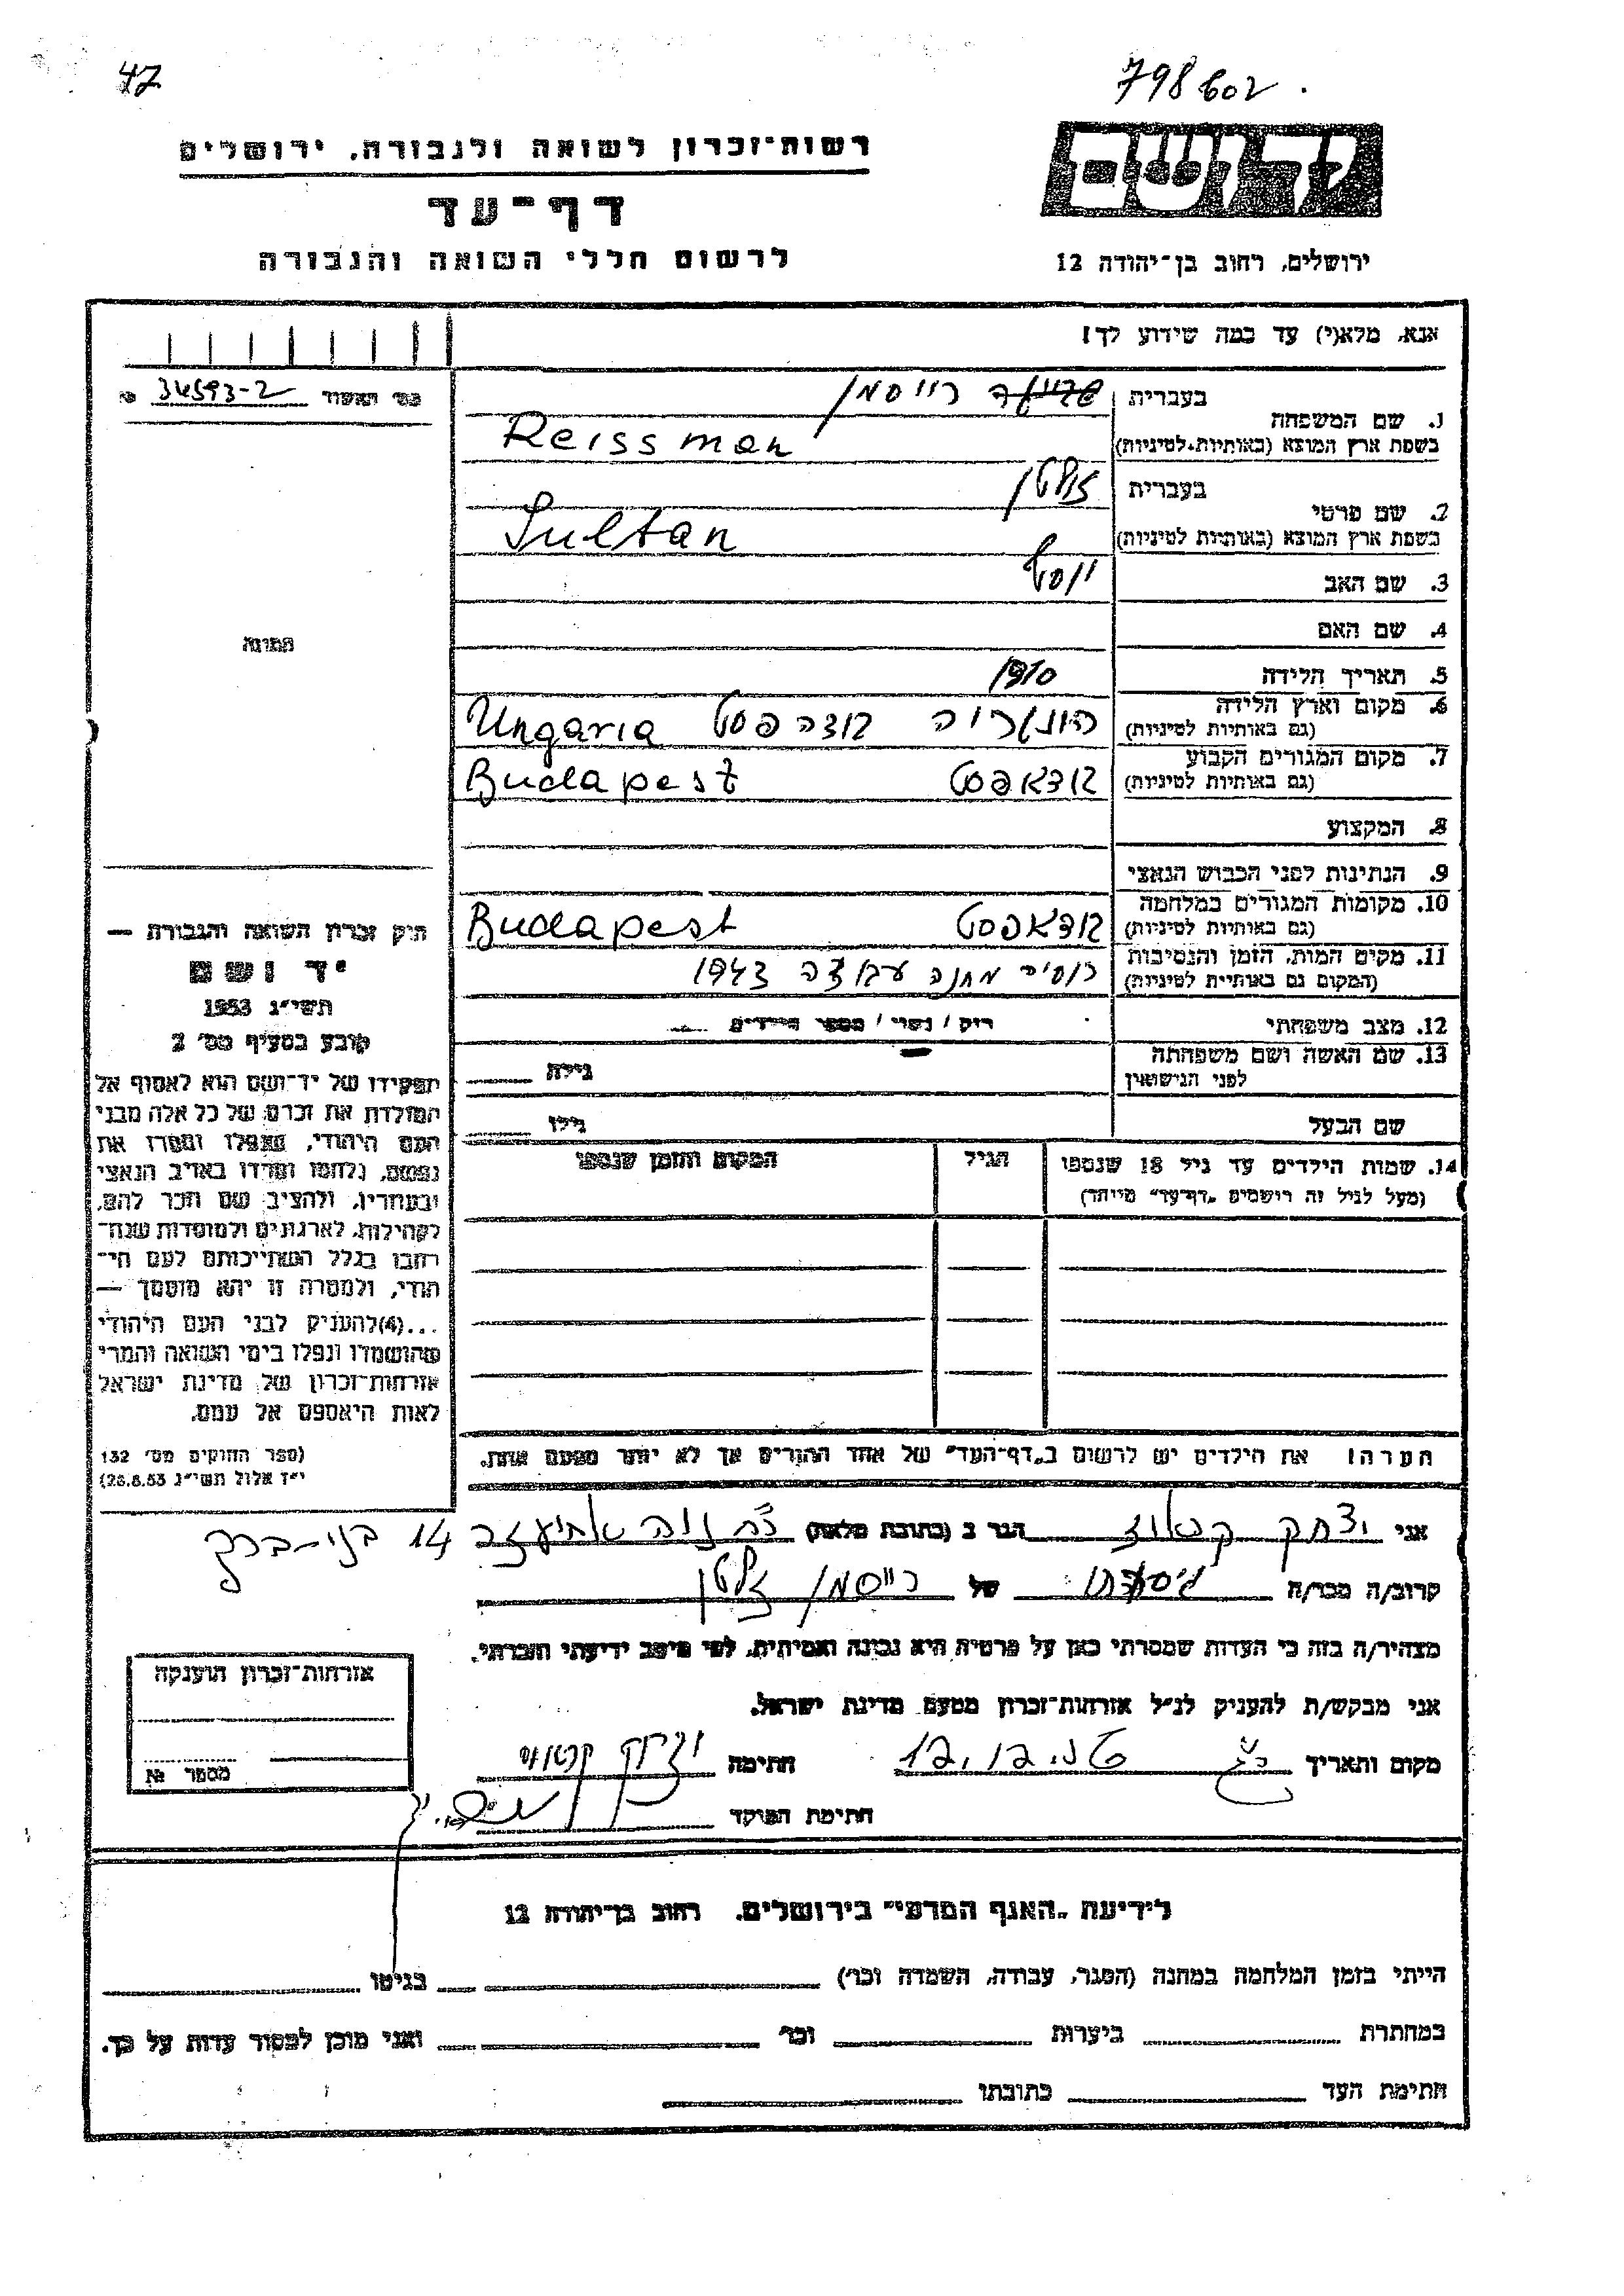 47
798602
רשות־זכרון לשואה ולגבורה, ירושלים
דף־עד
לרשום חללי השואה והגבורה
ירושלים, רחוב בן־יהודה 12
אנא, מלא(י) עד כמה שידוע לך!
מס׳ האשור 34593-2
1. שם המשפחה
בעברית רייסמן
בשפת ארץ המוצא (באותיות לטיניות) Reissman
2. שם פרטי
בעברית זולטן
בשפת ארץ המוצא (באותיות לטיניות) Sultan
3. שם האב יוסף
4. שם האם
תמונה
5. תאריך הלידה 1910
6. מקום וארץ הלידה הונגריה בודהפסט Ungaria
(גם באותיות לטיניות)
7. מקום המגורים הקבוע בודאפסט Budapest
(גם באותיות לטיניות)
8. המקצוע
9. הנתינות לפני הכבוש הנאצי
10. מקומות המגורים במלחמה בודאפסט Budapest
(גם באותיות לטיניות)
11. מקום המות, הזמן והנסיבות רוסיה מחנה עבודה 1943
(המקום גם באותיות לטיניות)
12. מצב משפחתי רוק / נשוי / מספר הילדים
13. שם האשה ושם משפחתה
לפני הנישואין גילה
שם הבעל גילו
14. שמות הילדים עד גיל 18 שנספו הגיל המקום והזמן שנספו
(מעל לגיל זה רושמים „דף־עד” מיוחד)
חוק זכרון השואה והגבורה —
יד ושם
תשי״ג 1953
קובע בסעיף מס׳ 2
תפקידו של יד־ושם הוא לאסוף אל
המולדת את זכרם של כל אלה מבני
העם היהודי, שנפלו ומסרו את
נפשם, נלחמו ומרדו באויב הנאצי
ובעוזריו, ולהציב שם וזכר להם,
לקהילות, לארגונים ולמוסדות שנח־
רבו בגלל השתייכותם לעם הי־
הודי, ולמטרה זו יהא מוסמך —
...(4) להעניק לבני העם היהודי
שהושמדו ונפלו בימי השואה והמרי
אזרחות־זכרון של מדינת ישראל
לאות היאספם אל עמם.
(ספר החוקים מס׳ 132
י״ז אלול תשי״ג 28.8.53)
הערה! את הילדים יש לרשום ב„דף־העד” של אחד ההורים אך לא יותר מפעם אחת.
אני יצחק הגר ב (כתובת מלאה) נוה אחיעזר 14 בני-ברק
קרוב/ה מכר/ה של רייסמן זולטן
מצהיר/ה בזה כי העדות שמסרתי כאן על פרטיה היא נכונה ואמיתית, לפי מיטב ידיעתי והכרתי.
אני מבקש/ת להעניק לנ״ל אזרחות־זכרון מטעם מדינת ישראל.
מקום ותאריך חתימה יצחק
חתימת הפוקד
אזרחות־זכרון הוענקה
מספר №
לידיעת „האגף המדעי” בירושלים, רחוב בן־יהודה 12
הייתי בזמן המלחמה במחנה (הסגר, עבודה, השמדה וכו׳) בגיטו
במחתרת ביערות וכו׳ ואני מוכן למסור עדות על כך.
חתימת העד כתובתו